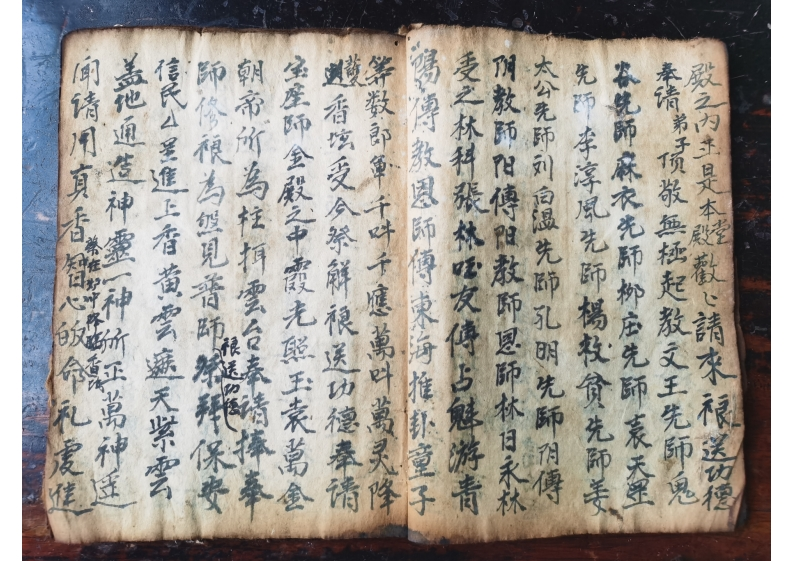 殿之内 是本殿堂 勸请來禳送功德
奉请弟子顶敬無極起教文王先師鬼
谷先師麻衣先師柳庄先師袁天罡
先師李淳風先師楊救貧先師姜
太公先師刘白温先師孔明先師阴傳
阴教師阳傳阳教師恩師林日永林
受之林科張林 友傳占魁游青
傳教恩師傳東海推卦童子
筭数郎军千呌千應萬呌萬灵降
香坛受今祭解禳送功德奉请
宝座師金殿之中霞光熙玉袁萬金
朝帝所為柱 雲台奉请捧奉
師修禳為 見普師祭拜保安
禳送功德
信民厶呈進上香黄雲遮天紫雲
盖地通造神靈一神所正萬神
向请用真香 心皈命礼虔進